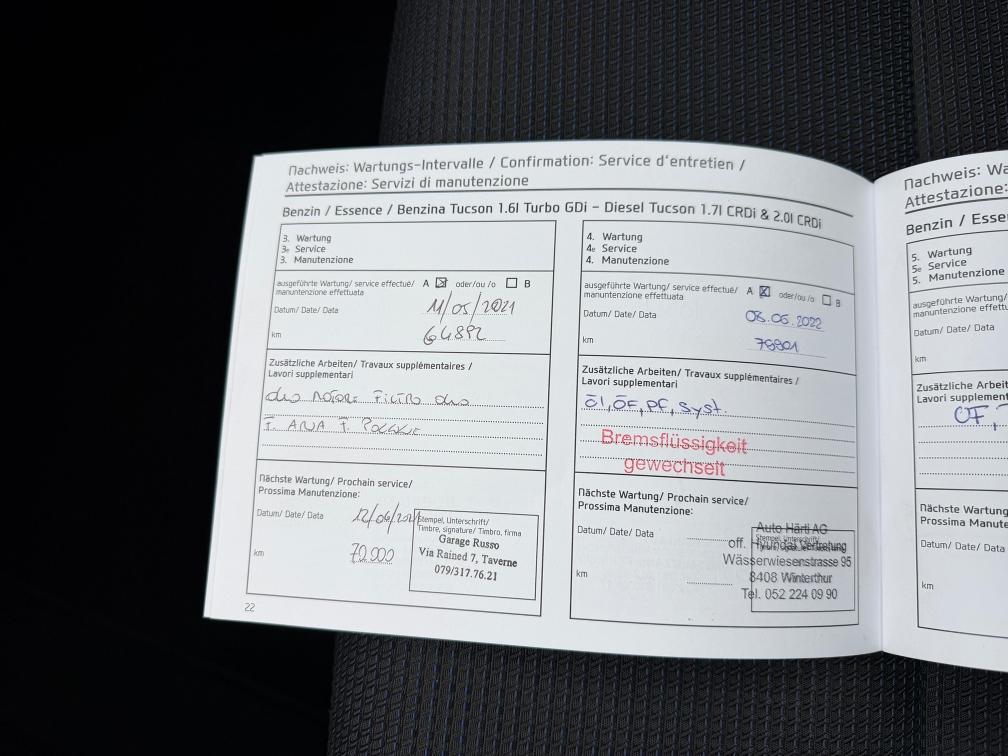 Nachweis: Wartungs-Intervalle / Confirmation: Service d'entretien /
Attestazione: Servizi di manutenzione
Benzin / Essence / Benzina Tucson 1.6l Turbo GDi – Diesel Tucson 1.7l CRDi & 2.0l CRDi
3. Wartung
3e Service
3. Manutenzione
ausgeführte Wartung/ service effectué/ A oder/ou/o B
manuntenzione effettuata
Datum/ Date/ Data 11/05/2021
km 64892
Zusätzliche Arbeiten/ Travaux supplémentaires /
Lavori supplementari
olio motore Filtro olio
F. ARIA F. POLLINE
Nächste Wartung/ Prochain service/
Prossima Manutenzione:
Datum/ Date/ Data
km 70.000
Stempel, Unterschrift/
Timbre, signature/ Timbro, firma
Garage Russo
Via Rained 7, Taverne
079/317.76.21
22
4. Wartung
4e Service
4. Manutenzione
ausgeführte Wartung/ service effectué/ A oder/ou/o B
manuntenzione effettuata
Datum/ Date/ Data 08.06.2022
km
Zusätzliche Arbeiten/ Travaux supplémentaires /
Lavori supplementari
öl, ÖF, PF, Syst.
Bremsflüssigkeit
gewechselt
Nächste Wartung/ Prochain service/
Prossima Manutenzione:
Datum/ Date/ Data
km
Auto Härti AG
off. Hyundai Vertretung
Wässerwiesenstrasse 95
8408 Winterthur
Tel. 052 224 09 90
Nachweis: Wa
Attestazione:
Benzin / Esse
5. Wartung
5e Service
5. Manutenzione
ausgeführte Wartung/
manuntenzione effettu
Datum/ Date/ Data
km
Zusätzliche Arbeit
Lavori supplement
ÖF,
Nächste Wartung
Prossima Manut
Datum/ Date/ Da
km